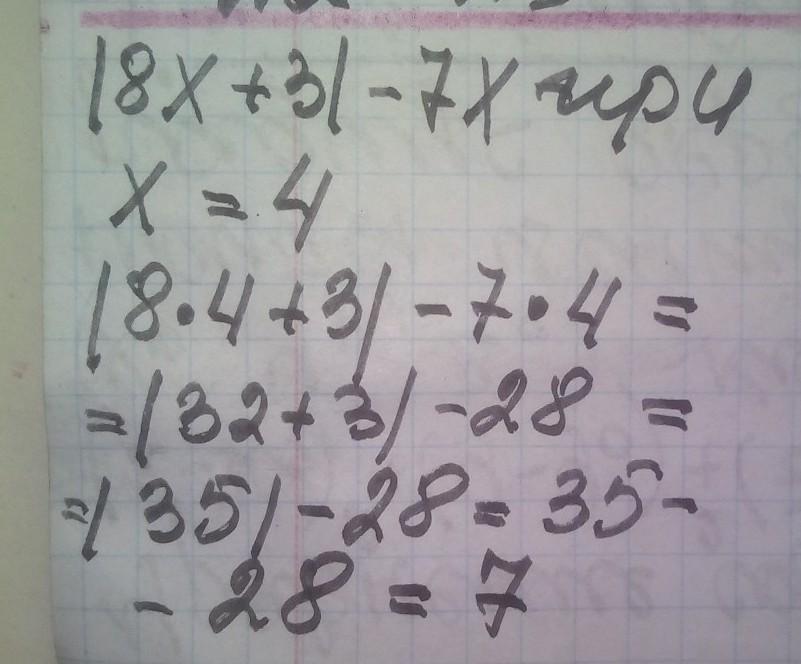 |8x+3|-7x при
x = 4
|8·4+3|-7·4=
=|32+3|-28 =
=|35|-28= 35-
- 28 = 7